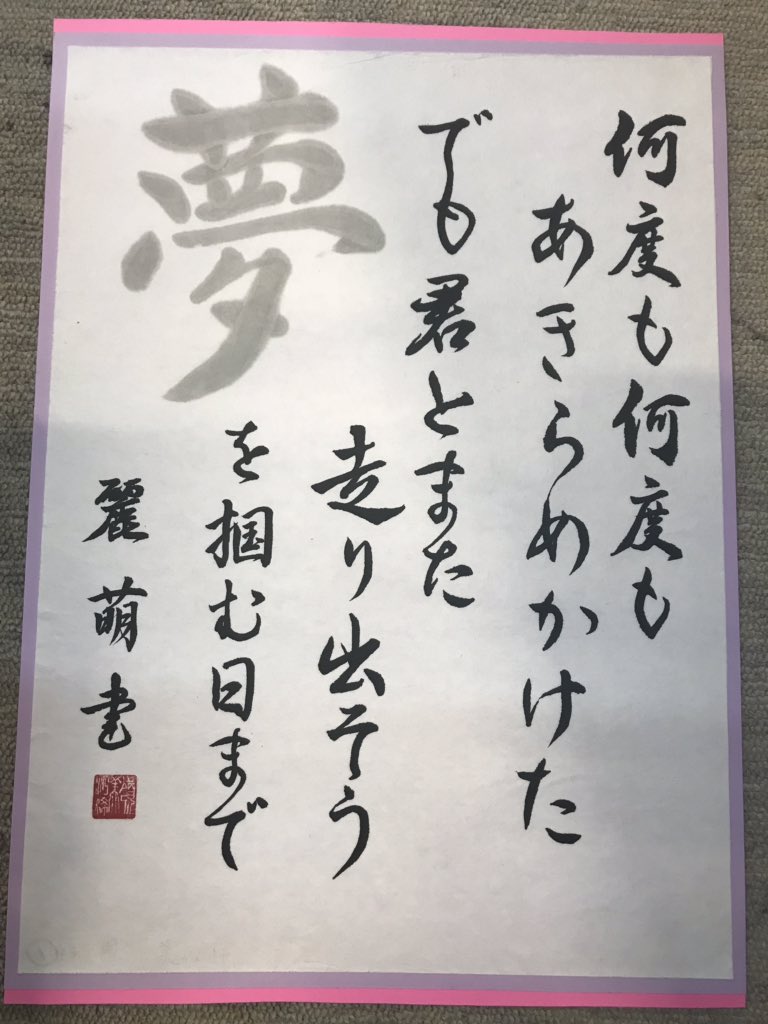 何度も何度も
あきらめかけた
でも君とまた
走り出そう
夢
を掴む日まで
麗萌書